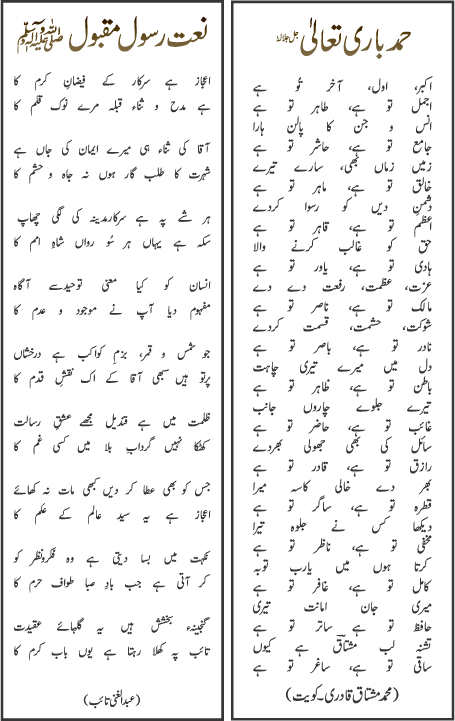 حمد باری تعالیٰ جل جلالہٗ
اکبر، اول، آخر تُو ہے
اجمل تو ہے، طاہر تو ہے
انس و جن کا پالن ہارا
جامع تو ہے، حاشر تو ہے
زمیں زماں بھی، سارے تیرے
خالق تو ہے، ماہر تو ہے
دشمنِ دیں کو رسوا کردے
اعظم تو ہے، قاہر تو ہے
حق کو غالب کرنے والا
ہادی تو ہے، یاور تو ہے
عزت، عظمت، رفعت دے دے
مالک تو ہے، ناصر تو ہے
شوکت، حشمت، قسمت کردے
نادر تو ہے، باصر تو ہے
دل میں میرے تیری چاہت
باطن تو ہے، ظاہر تو ہے
تیرے جلوے چاروں جانب
غائب تو ہے، حاضر تو ہے
سائل کی بھی جھولی بھردے
رازق تو ہے، قادر تو ہے
بھر دے خالی کاسہ میرا
قطرہ تو ہے، ساگر تو ہے
دیکھا کس نے جلوہ تیرا
مخفی تو ہے، ناظر تو ہے
کرتا ہوں میں یارب توبہ
کامل تو ہے، غافر تو ہے
میری جان امانت تیری
حافظ تو ہے ساتر تو ہے
تشنہ لب مشتاقؔ ہے کیوں
ساقی تو ہے، ساغر تو ہے
(محمد مشتاق قادری۔کویت)
نعت رسول مقبول ﷺ
اعجاز ہے سرکار کے فیضانِ کرم کا
ہے مدح و ثناء قبلہ مرے نوک قلم کا
آقا کی ثناء ہی میرے ایمان کی جاں ہے
شہرت کا طلب گار ہوں نہ جاہ و حشم کا
ہر شے پہ ہے سرکارمدینہ کی لگی چھاپ
سکہ ہے یہاں ہر سُو رواں شاہِ امم کا
انسان کو کیا معنی توحیدسے آگاہ
مفہوم دیا آپ نے موجود و عدم کا
جو شمس و قمر، بزم کواکب ہے درخشاں
پرتو ہیں سبھی آقا کے اک نقشِ قدم کا
ظلمت میں ہے قندیل مجھے عشقِ رسالت
کھٹکا نہیں گردابِ بلا میں کسی غم کا
جس کو بھی عطا کر دیں کبھی مات نہ کھائے
اعجاز ہے یہ سید عالم کے علم کا
نکہت میں بسا دیتی ہے وہ فکرونظر کو
کر آتی ہے جب بادِ صبا طواف حرم کا
گنجینۂ بخشش ہیں یہ گلہائے عقیدت
تائب پہ کھلا رہتا ہے یوں باب کرم کا
(عبدالغنی تائب)